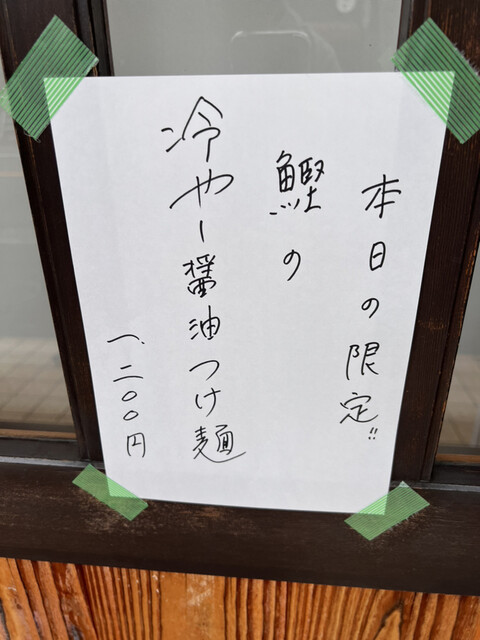 本日の限定!!
鰹の
冷やー醤油つけ麺
一、二〇〇円